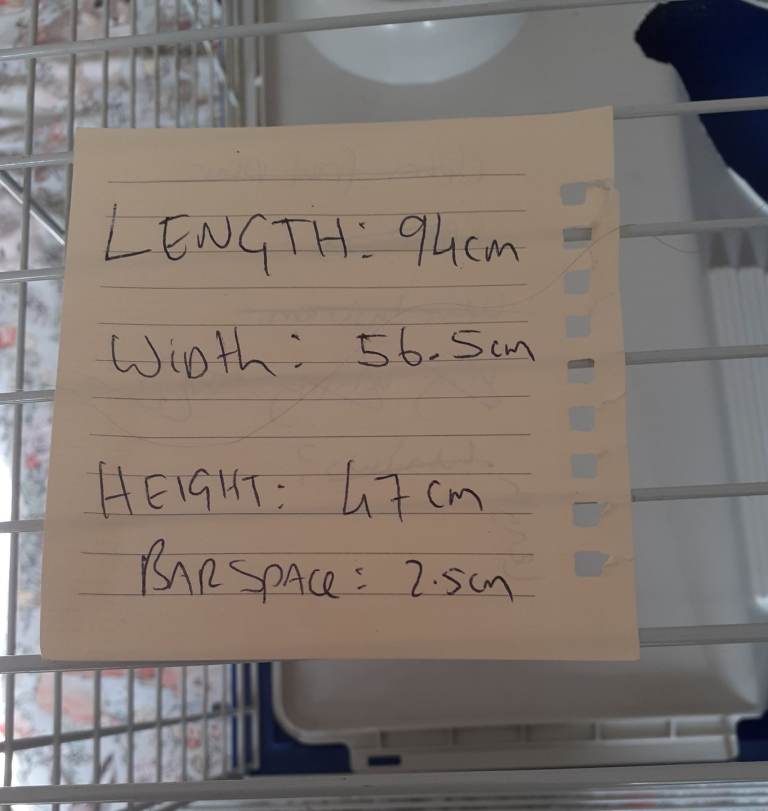 LENGTH: 94cm
WiDth: 56.5cm
HEIGHT: 47cm
BAR SPACe: 2.5cm